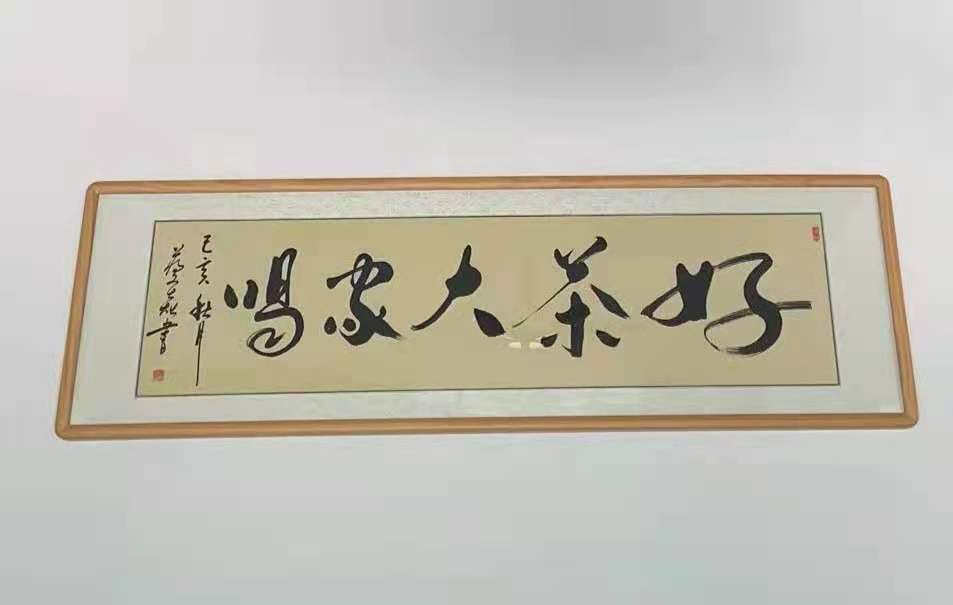 好茶大家喝
己亥秋月
书